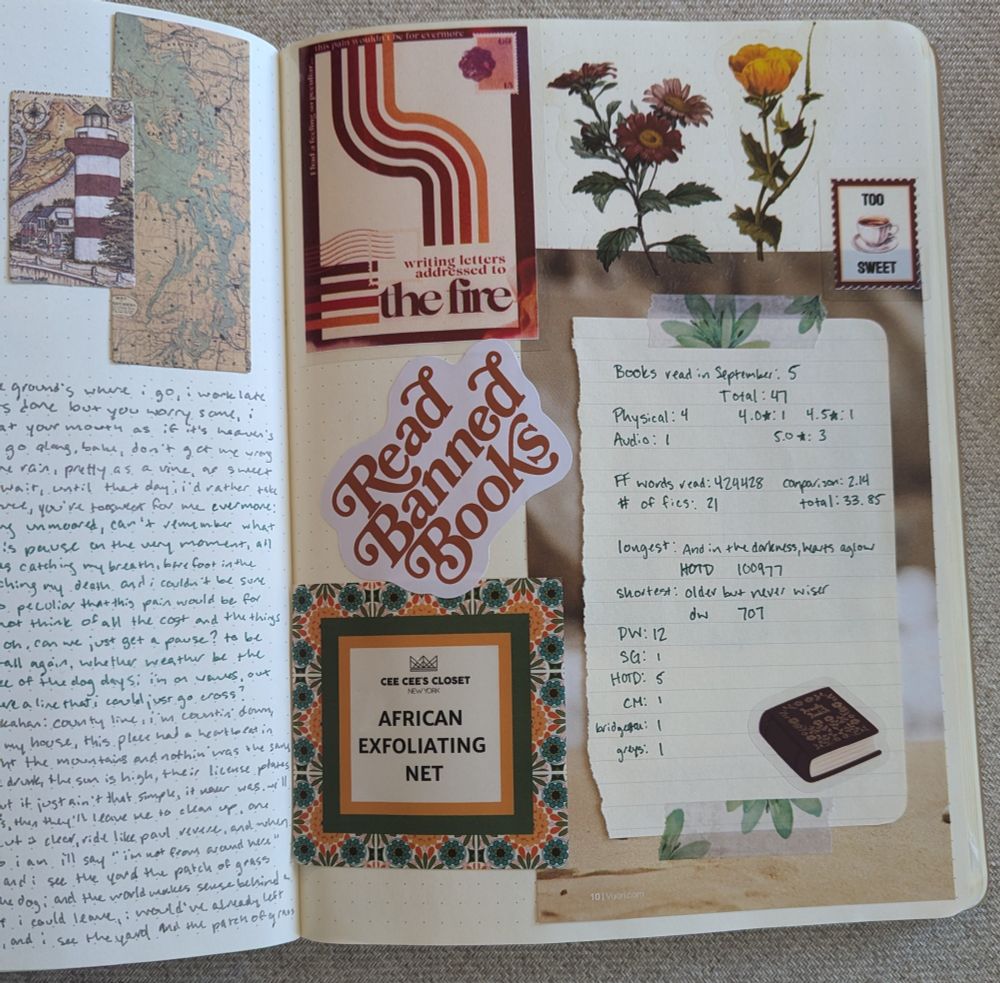 e ground's where i go, i work late
s done but you worry some, i
at your mouth as if it's heaven's
go along, babe, don't get me wrong
e rain, pretty as a vine, as sweet
wait, until that day, i'd rather take
you're too sweet for me evermore:
ng unmoored, can't remember what
is pause on the very moment, all
s catching my breath, barefoot in the
ching my death and i couldn't be sure
o peculiar that this pain would be for
not think of all the cost and the things
oh, can we just get a pause? to be
tall again, whether weather be the
ee of the dog days; i'm on waves, out
ere a line that i could just go cross?
kahan: county line, i'm countin' down,
my house, this place had a heartbeat in
the mountains and nothin' was the same
drunk, the sun is high, their license plates
ut it just ain't that simple, it never was. i'll
s, then they'll leave me to clean up, one
clear, ride like paul revere, and when
o i am, i'll say "i'm not from around here"
and i see the yard the patch of grass
the dog; and the world makes sense behind a
i could leave, i would've already left
, and i see the yard and the patch of grass
this pain wouldn't be for evermore
I had a feeling so peculiar...
writing letters
addressed to
the fire
Read
Banned
Books
CEE CEE'S CLOSET
NEW YORK
AFRICAN
EXFOLIATING
NET
TOO
SWEET
Books read in September: 5
Total: 47
Physical: 4 4.0★: 1 4.5★: 1
Audio: 1 5.0★: 3
FF words read: 424428 comparison: 2.14
# of fics: 21 total: 33.85
longest: And in the darkness, hearts aglow
HOTD 100977
shortest: older but never wiser
dw 707
DW: 12
SG: 1
HOTD: 5
CM: 1
bridgerton: 1
greys: 1
10 | Vuori.com